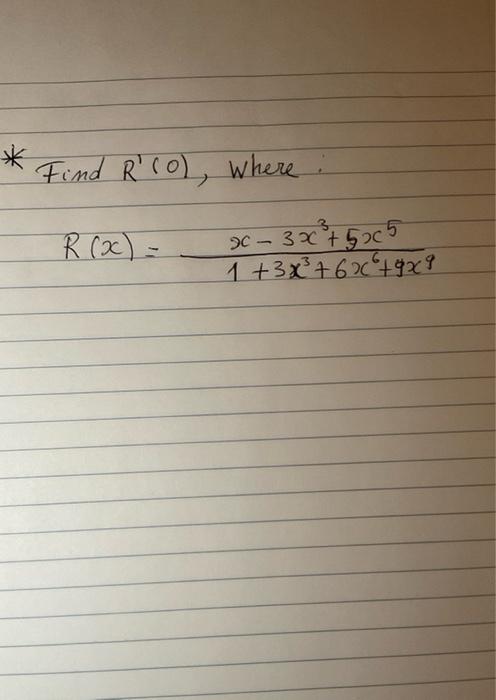 * Find R'(0), Where :
R(x) = x - 3x³ + 5x⁵
1 + 3x³ + 6x⁶ + 9x⁹